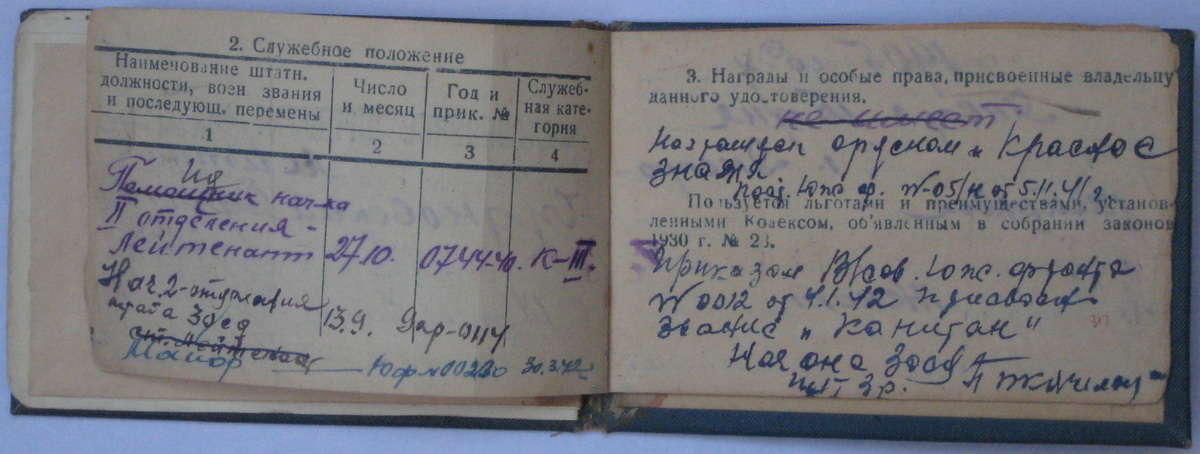 2. Служебное положение
Наименование штатн.
должности, воен звания
и последующ. перемены
Число
и месяц
Год и
прик. №
Служеб-
ная кате-
гория
1
2
3
4
Помощник нач-ка
II отделения -
Лейтенант 27.10. 0744-40. К-III.
Нач 2-отделения
штаба 30 сд 13.9.
Майор 30.3.42
3. Награды и особые права, присвоенные владельцу
данного удостоверения.
не имеет
Награжден орденом „Красное
Знамя
№ 05/н от 5.11.41 г.
Пользуется льготами и преимуществами, установ-
ленными Кодексом, об'явленным в собрании законов
1930 г. № 23.
Приказом Юж. фронта
№ 0012 от 4.1.42 присвоено
звание „Капитан"